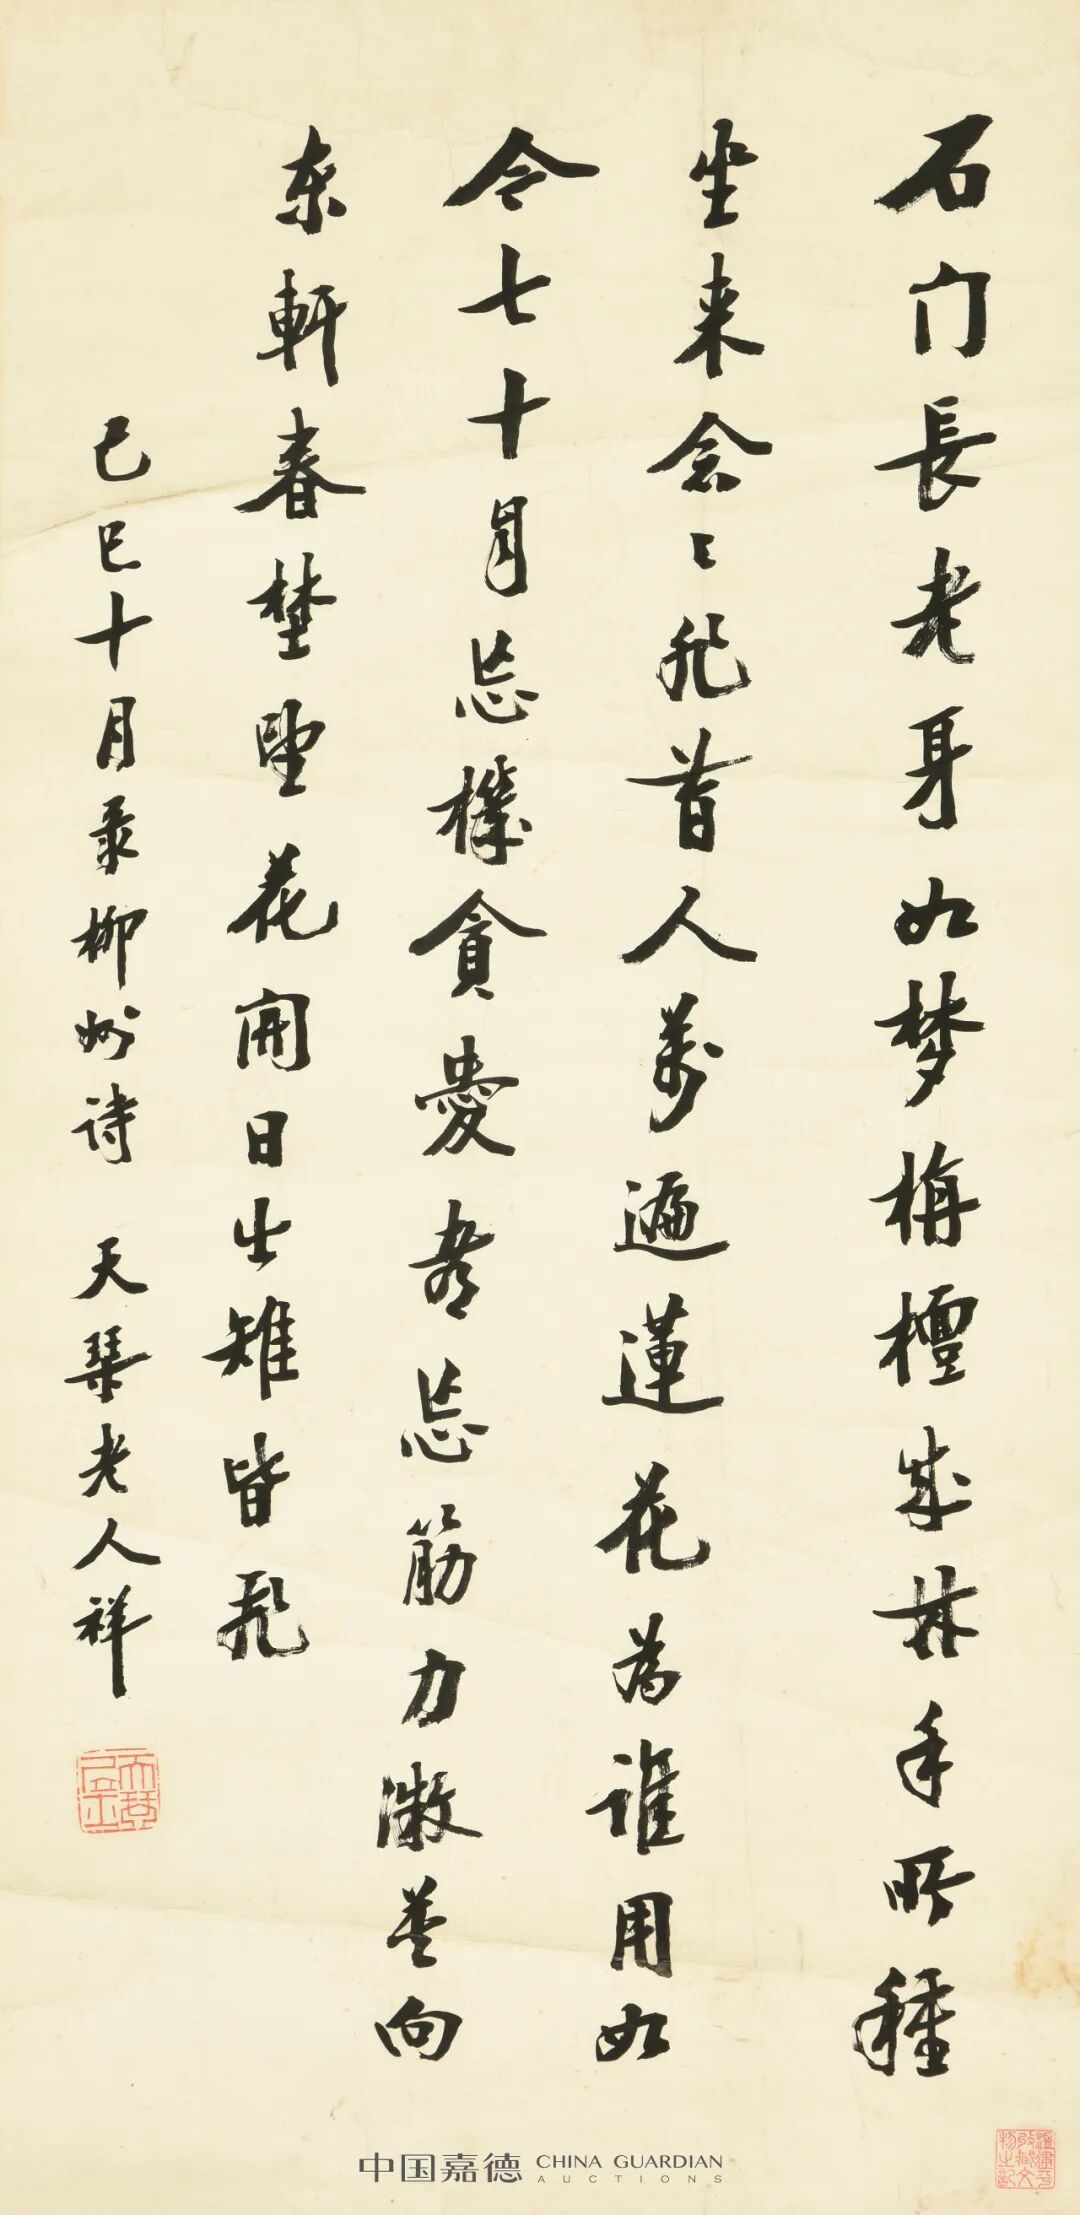 石门長老身如梦栴檀成林手所種
坐来念〻非昔人萬遍蓮花為誰用如
今七十自忘機貪愛都忘筋力微莫向
东軒春埜望花開日出雉皆飛
己巳十月录柳州诗 天琴老人祥
中国嘉德 CHINA GUARDIAN
AUCTIONS